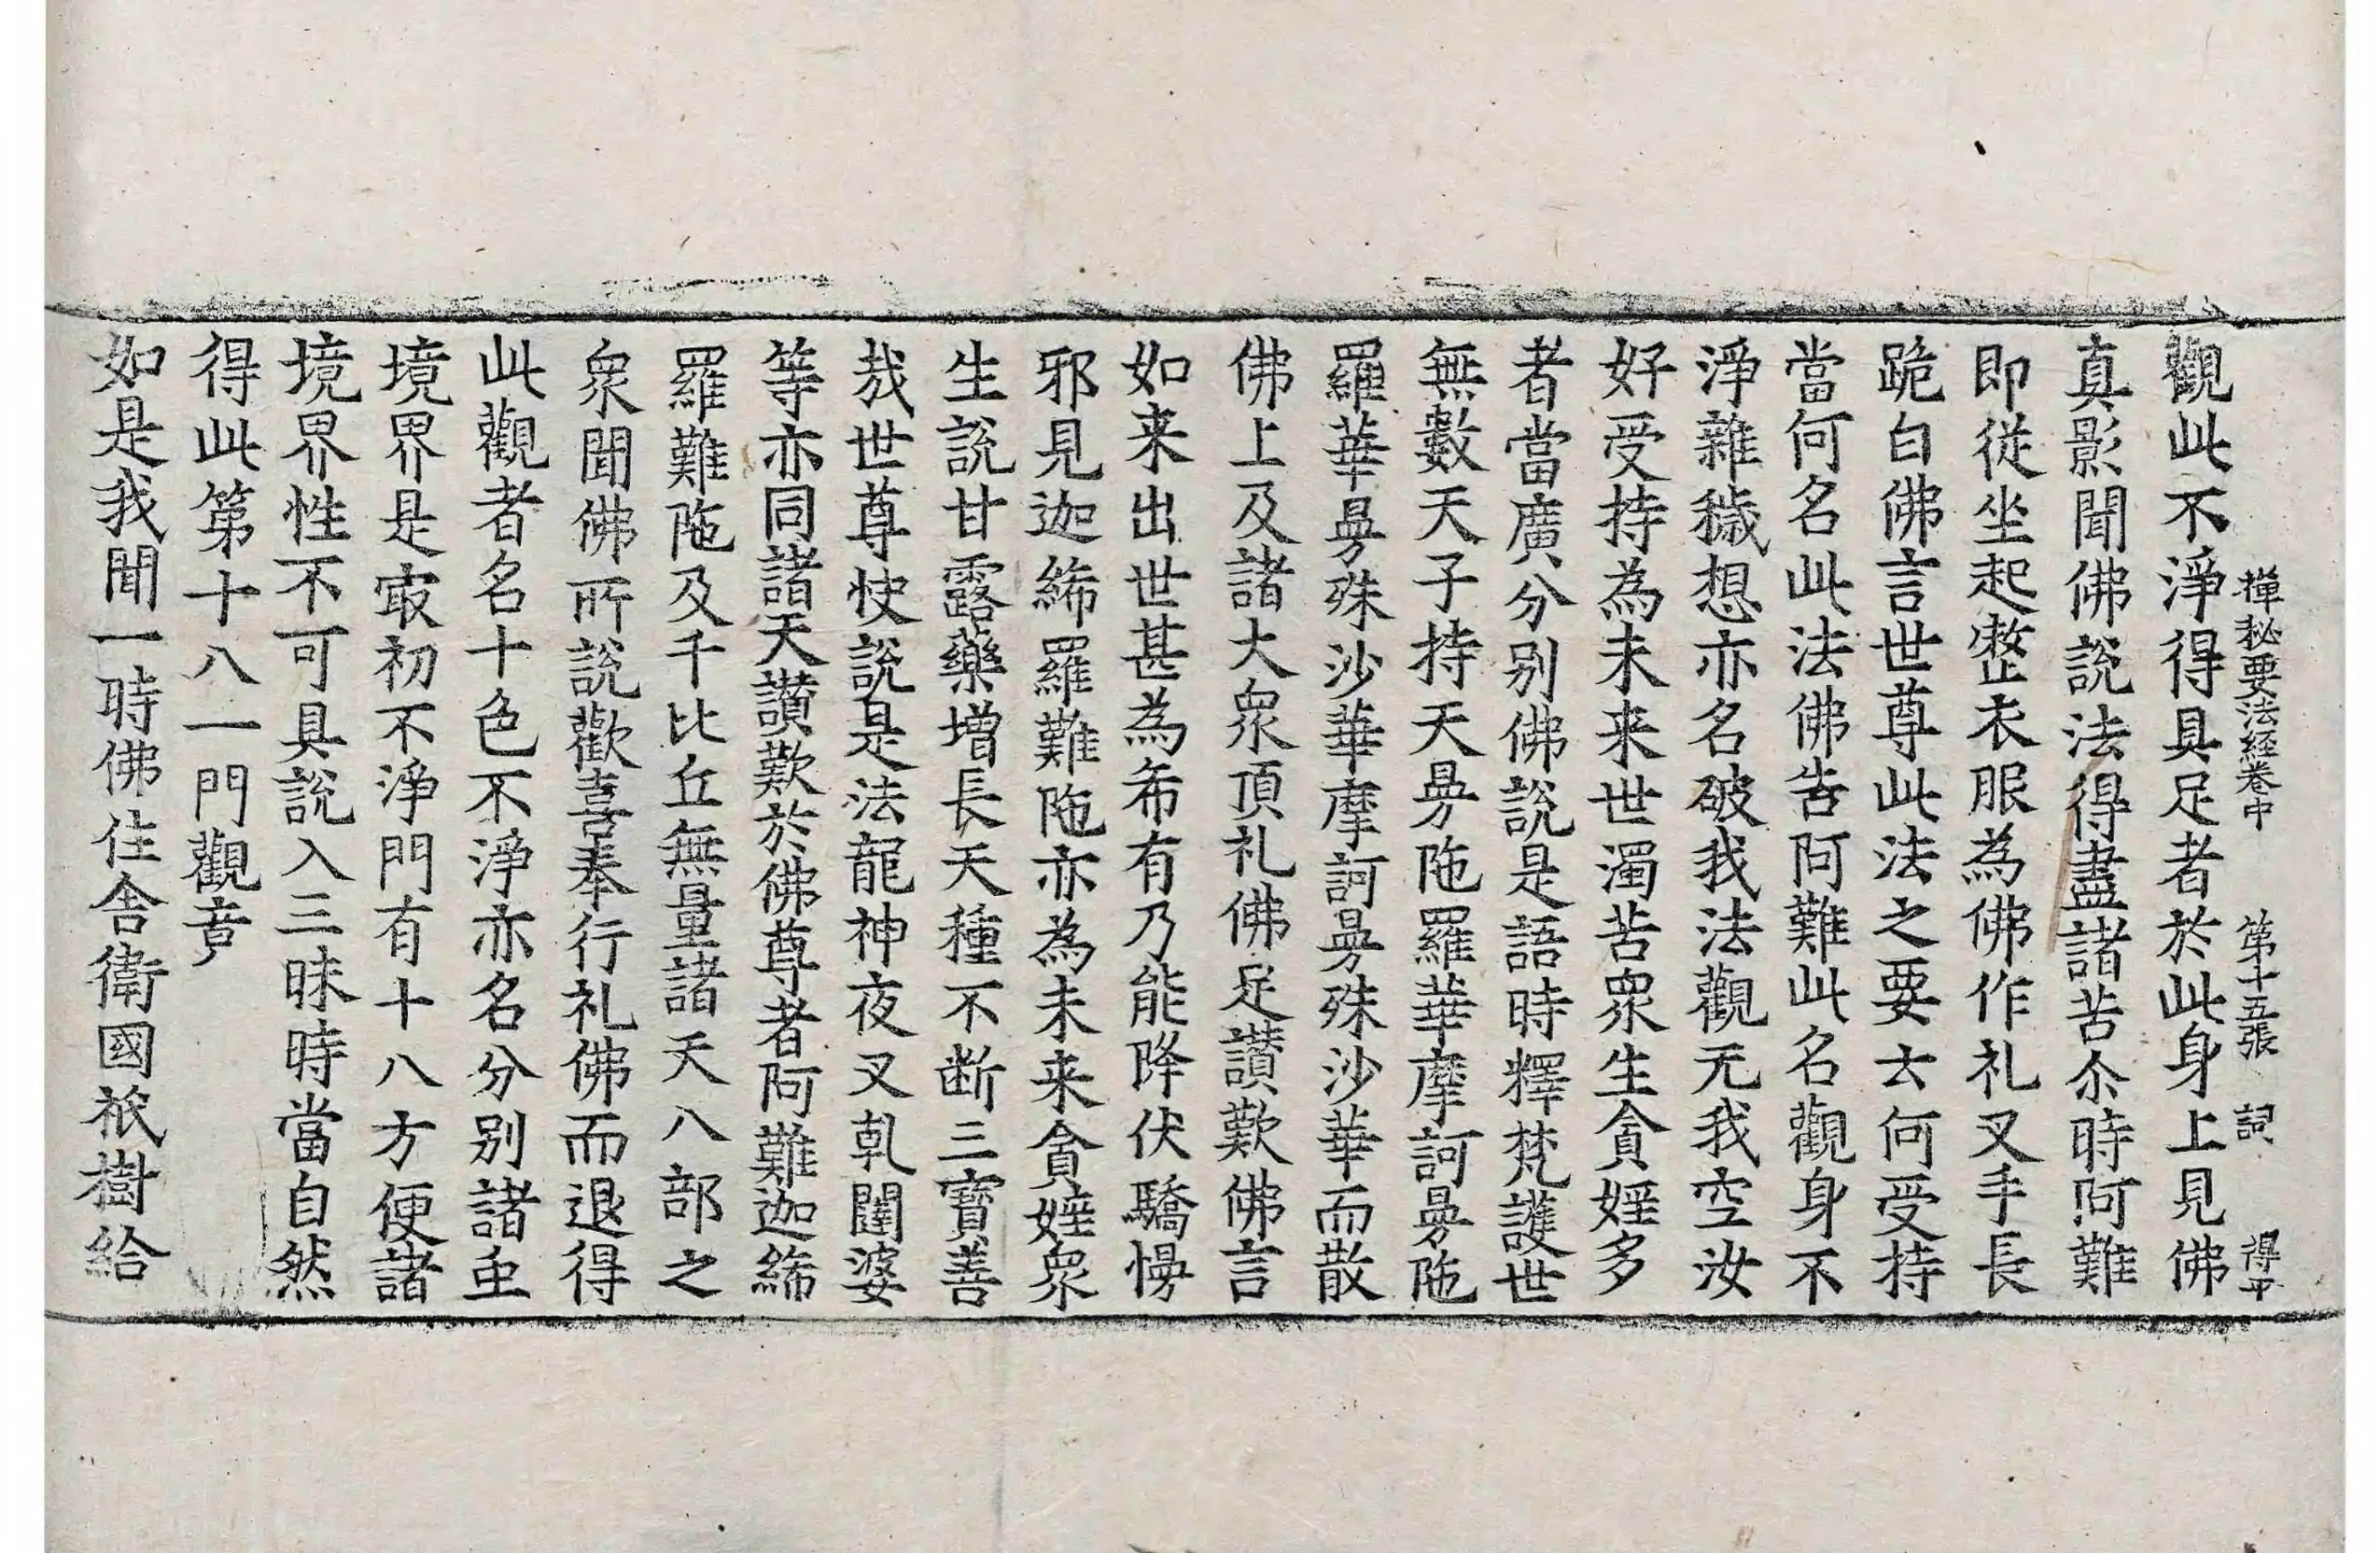 禪秘要法經卷中 第十五張 詞 得平
觀此不淨得具足者於此身上見佛
真影聞佛說法得盡諸苦尒時阿難
即從坐起整衣服為佛作礼叉手長
跪白佛言世尊此法之要云何受持
當何名此法佛告阿難此名觀身不
淨雜穢想亦名破我法觀无我空汝
好受持為未来世濁苦衆生貪婬多
者當廣分別佛說是語時釋梵護世
無數天子持天曼陁羅華摩訶曼陁
羅華曼殊沙華摩訶曼殊沙華而散
佛上及諸大衆頂礼佛足讃歎佛言
如来出世甚為希有乃能降伏驕慢
邪見迦絺羅難陁亦為未来貪婬衆
生說甘露藥增長天種不断三寶善
哉世尊快說是法龍神夜叉乹闥婆
等亦同諸天讃歎於佛尊者阿難迦絺
羅難陁及千比丘無量諸天八部之
衆聞佛所說歡喜奉行礼佛而退得
此觀者名十色不淨亦名分別諸虫
境界是㝡初不淨門有十八方便諸
境界性不可具說入三昧時當自然
得此第十八一門觀竟
如是我聞一時佛住舍衛國祇樹給